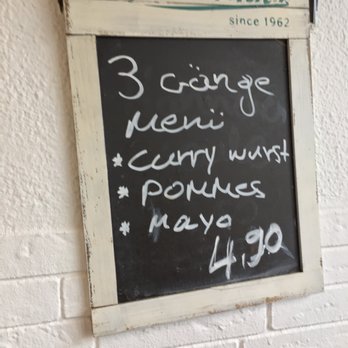 since 1962
3 Gänge
Menü
* Curry wurst
* Pommes
* Mayo
4,90